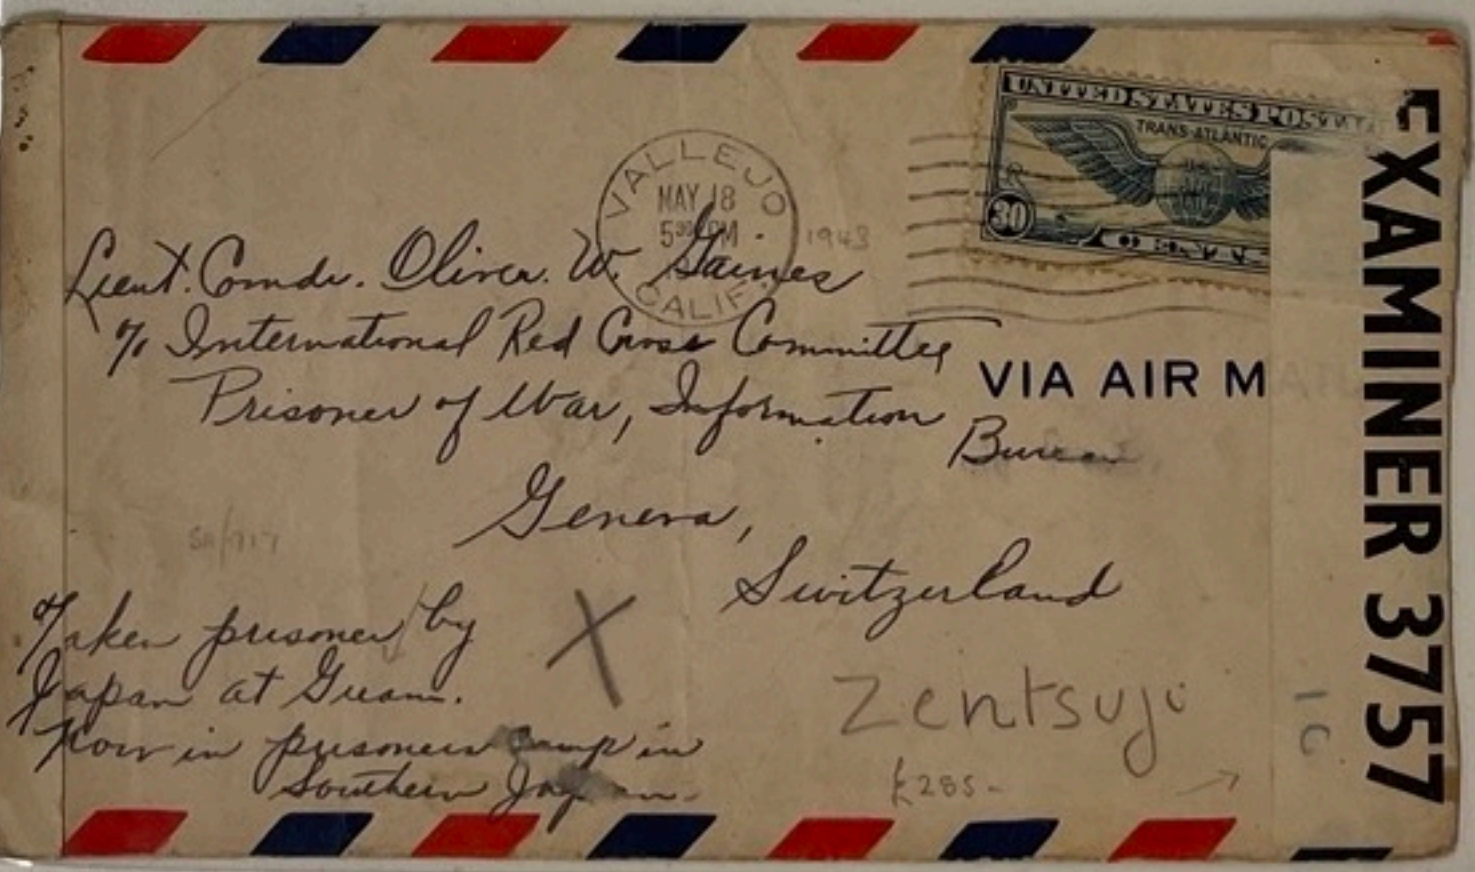 UNITED STATES POSTA
TRANS-ATLANTIC
30
CENTS
VALLEJO
MAY 18
5 30 PM
CALIF.
1943
Lieut. Comdr. Oliver W. Gaines
℅ International Red Cross Committee
Prisoner of War, Information
Bureau
VIA AIR M
Geneva,
Switzerland
Taken prisoner by
Japan at Guam.
Now in prisoners camp in
Southern Japan.
X
Zentsuji
£285-
EXAMINER 3757